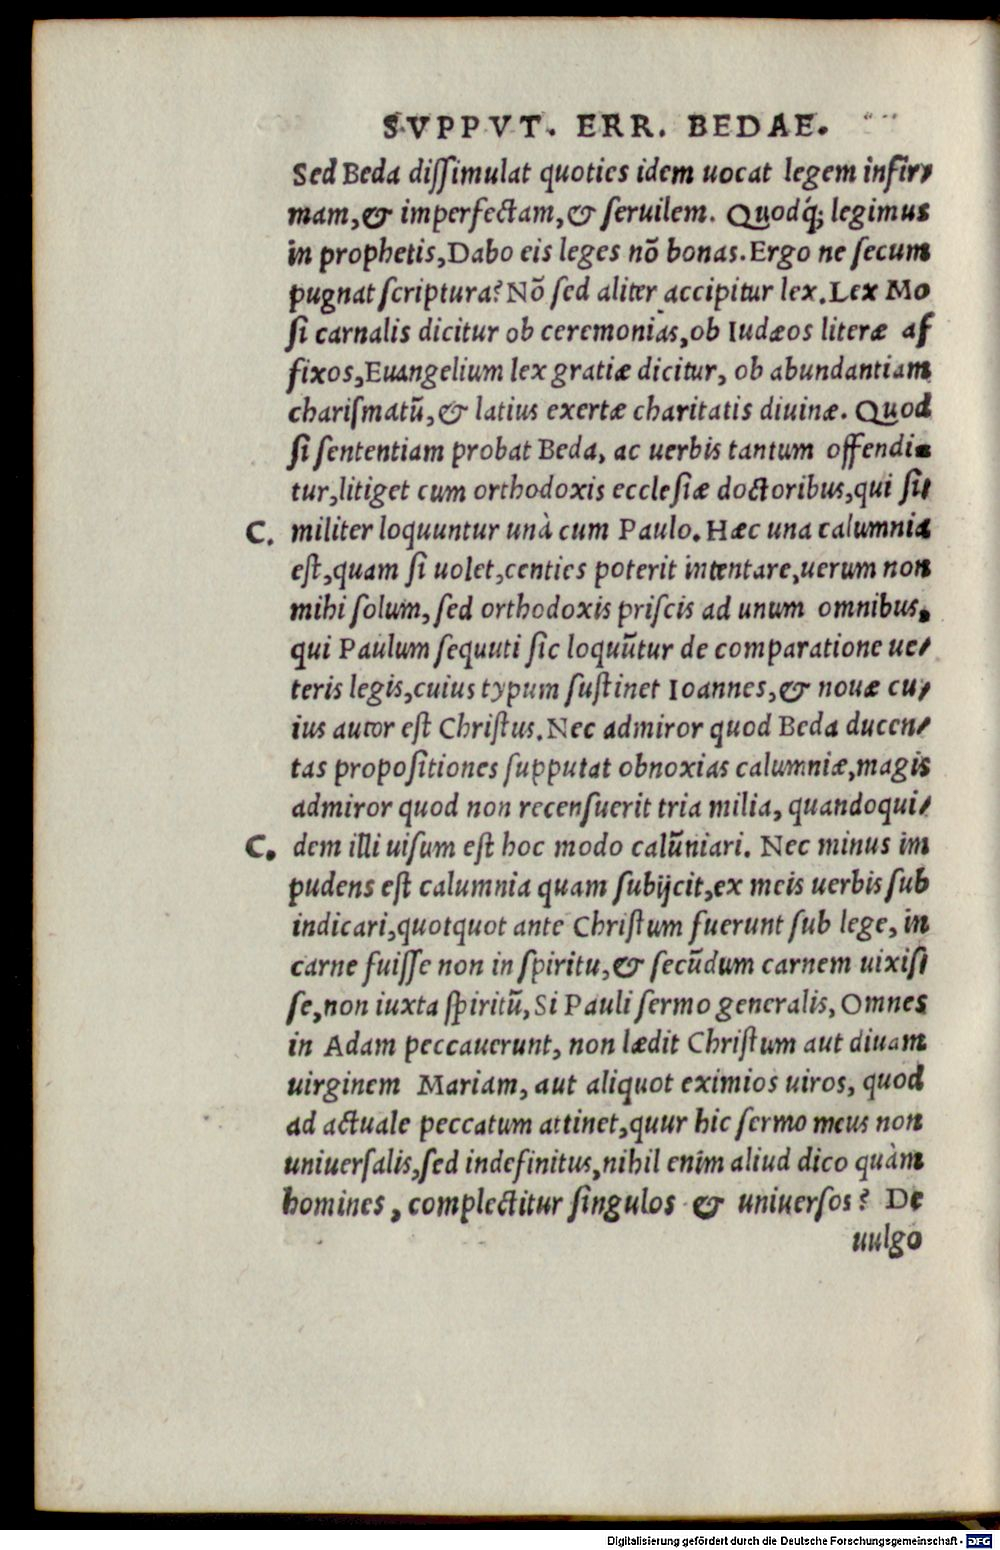 SVPPVT. ERR. BEDAE.
Sed Beda dissimulat quoties idem uocat legem infir-
mam, & imperfectam, & seruilem. Quodq́; legimus
in prophetis, Dabo eis leges nō bonas. Ergo ne secum
pugnat scriptura? Nō sed aliter accipitur lex. Lex Mo
si carnalis dicitur ob ceremonias, ob Iudæos literæ af
fixos, Euangelium lex gratiæ dicitur, ob abundantiam
charismatū, & latius exertæ charitatis diuinæ. Quod
si sententiam probat Beda, ac uerbis tantum offendi-
tur, litiget cum orthodoxis ecclesiæ doctoribus, qui si-
C. militer loquuntur unà cum Paulo. Hæc una calumnia
est, quam si uolet, centies poterit intentare, uerum non
mihi solum, sed orthodoxis priscis ad unum omnibus,
qui Paulum sequuti sic loquūtur de comparatione ue-
teris legis, cuius typum sustinet Ioannes, & nouæ cu-
ius autor est Christus. Nec admiror quod Beda ducen-
tas propositiones supputat obnoxias calumniæ, magis
admiror quod non recensuerit tria milia, quandoqui-
C. dem illi uisum est hoc modo calūniari. Nec minus im
pudens est calumnia quam subijcit, ex meis uerbis sub
indicari, quotquot ante Christum fuerunt sub lege, in
carne fuisse non in spiritu, & secūdum carnem uixis-
se, non iuxta spiritū, Si Pauli sermo generalis, Omnes
in Adam peccauerunt, non lædit Christum aut diuam
uirginem Mariam, aut aliquot eximios uiros, quod
ad actuale peccatum attinet, quur hic sermo meus non
uniuersalis, sed indefinitus, nihil enim aliud dico quàm
homines, complectitur singulos & uniuersos? De
uulgo
Digitalisierung gefördert durch die Deutsche Forschungsgemeinschaft - DFG